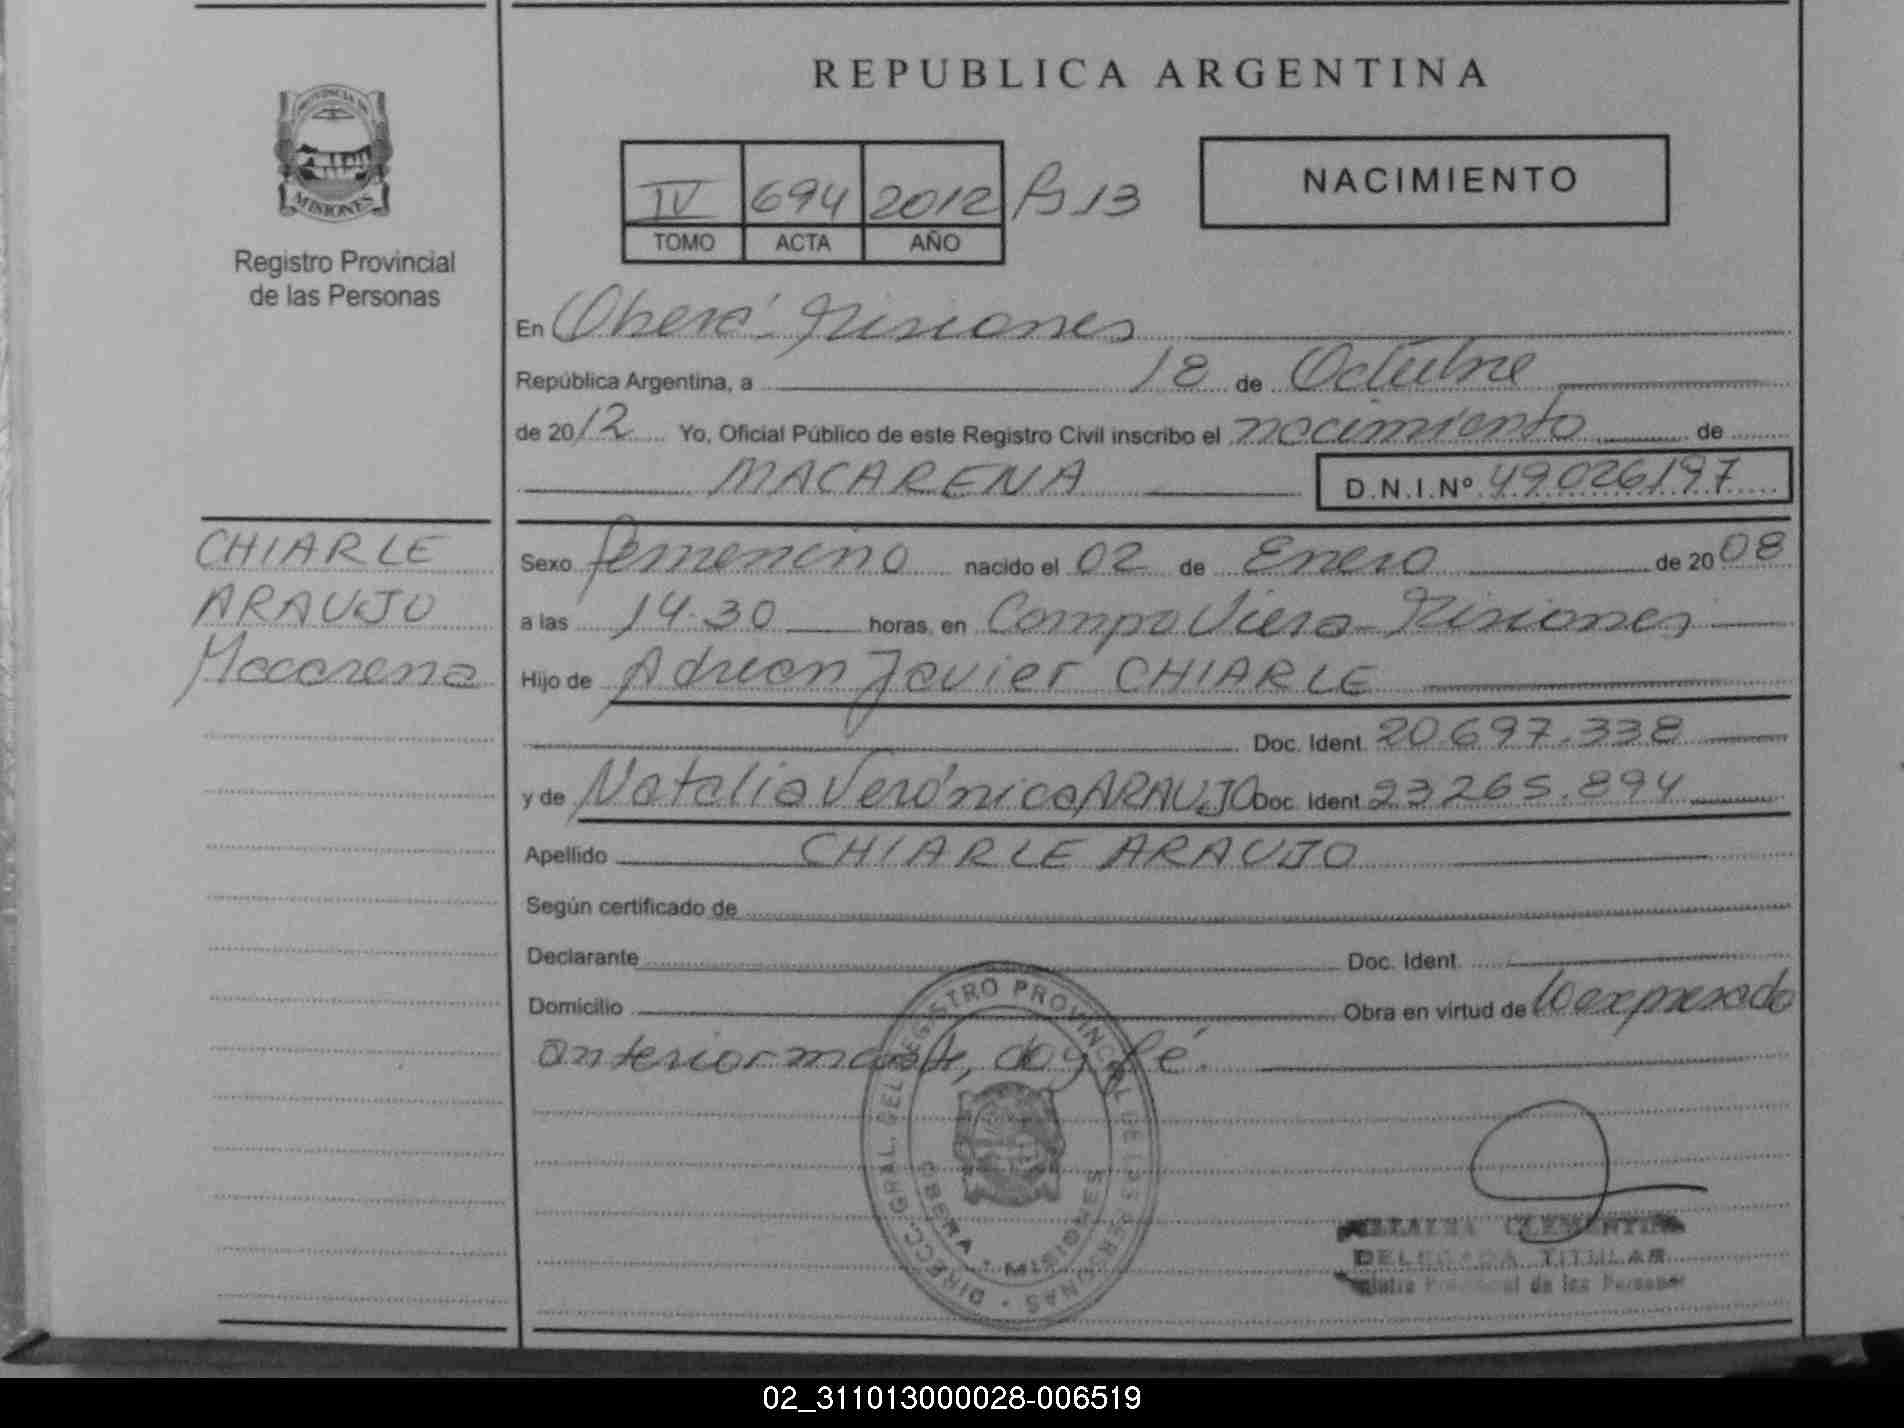 REPUBLICA ARGENTINA
PROVINCIA DE
MISIONES
Registro Provincial
de las Personas
IV 694 2012 Fº 13
TOMO ACTA AÑO
NACIMIENTO
En Oberá - Misiones
República Argentina, a 18 de Octubre
de 2012 Yo, Oficial Público de este Registro Civil inscribo el nacimiento de
MACARENA D.N.I.Nº 49026197
CHIARLE
ARAUJO
Macarena
Sexo femenino nacido el 02 de Enero de 2008
a las 14.30 horas, en Campo Viera - Misiones
Hijo de Adrian Javier CHIARLE
Doc. Ident. 20.697.338
y de Natalia Verónica ARAUJO Doc. Ident. 23265.894
Apellido CHIARLE ARAUJO
Según certificado de
Declarante Doc. Ident.
Domicilio Obra en virtud de lo expresado
anteriormente, doy fé.
DIRECC. GRAL. DEL REGISTRO PROVINCIAL DE LAS PERSONAS
OBERA - MISIONES
DELEGADA TITULAR
Provincial de las Personas
02_311013000028-006519